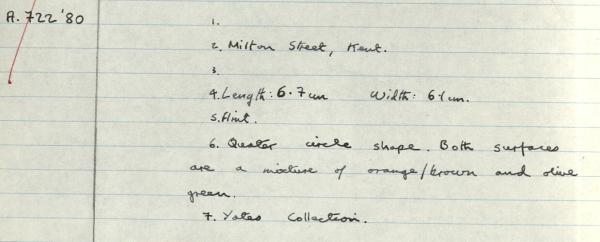 A.722'80
1.
2. Milton Street, Kent.
3.
4. Length: 6.7cm Width: 61cm.
5. Flint.
6. Quater circle shape. Both surfaces
are a mixture of orange/brown and olive
green.
7. Yates Collection.